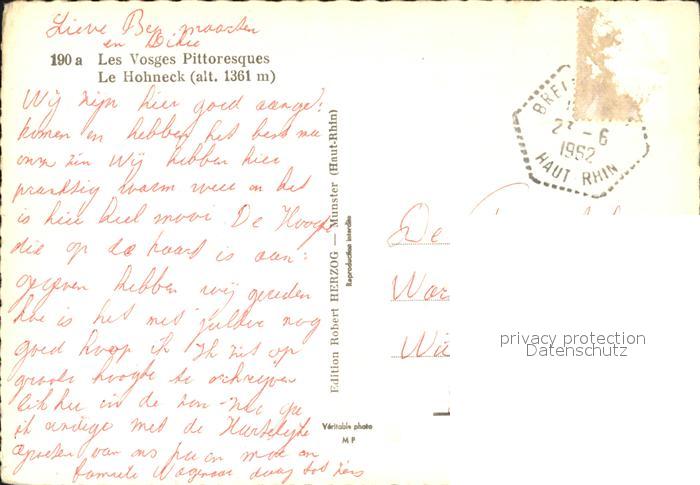 Lieve Bep maarten
en Dikie
190 a Les Vosges Pittoresques
Le Hohneck (alt. 1361 m)
Wij zijn hier goed aange:
komen en hebben het best naar
onze zin Wij hebben hier
prachtig warm weer en het
is hier heel mooi De Hoogte
die op de kaart is aan:
gegeven hebben wij gereden
hoe is het met jullie nog
goed hoop ik Ik zit op
groote hoogte te schrijven
in de zon nu ga
ik eindige met de Hartelijke
groeten van ons pa en moe en
familie Wagenaar daag tot ziens
Edition Robert HERZOG — Munster (Haut-Rhin)
Reproduction interdite
Véritable photo
M P
BREIT
2 - 6
1962
HAUT RHIN
De
War
Wi
privacy protection
Datenschutz